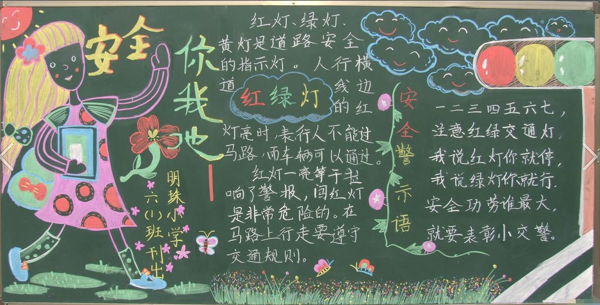 安全
你我他
明珠小学
六(1)班刊出
红灯、绿灯、
黄灯是道路安全
的指示灯。人行横
道线边
的红
红绿灯
灯亮时,表行人不能过
马路,而车辆可以通过。
红灯一亮等于
响了警报,闯红灯
是非常危险的。在
马路上行走要遵守
交通规则。
安全警示语
一二三四五六七,
注意红绿交通灯。
我说红灯你就停,
我说绿灯你就行。
安全功劳谁最大,
就要表彰小交警。